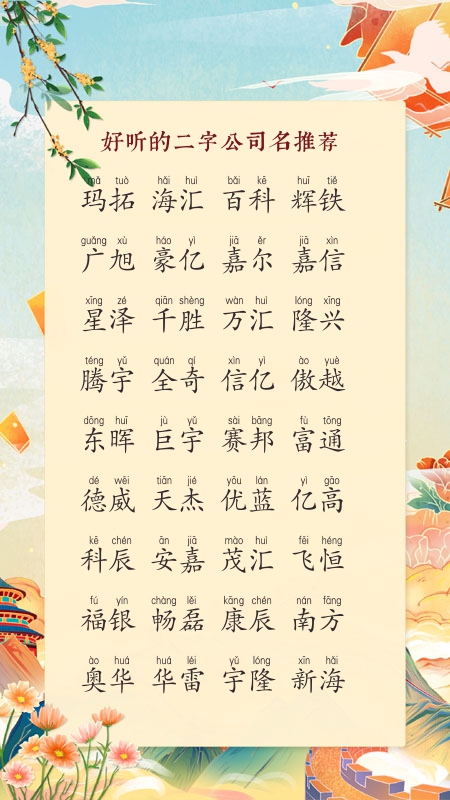 好听的二字公司名推荐
mǎ tuò hǎi huì bǎi kē huī tiě
玛拓 海汇 百科 辉铁
guǎng xù háo yì jiā ěr jiā xìn
广旭 豪亿 嘉尔 嘉信
xīng zé qiān shèng wàn huì lóng xīng
星泽 千胜 万汇 隆兴
téng yǔ quán qí xìn yì ào yuè
腾宇 全奇 信亿 傲越
dōng huī jù yǔ sài bāng fù tōng
东晖 巨宇 赛邦 富通
dé wēi tiān jié yōu lán yì gāo
德威 天杰 优蓝 亿高
kē chén ān jiā mào huì fēi héng
科辰 安嘉 茂汇 飞恒
fú yín chàng lěi kāng chén nán fāng
福银 畅磊 康辰 南方
ào huá huá léi yǔ lóng xīn hǎi
奥华 华雷 宇隆 新海